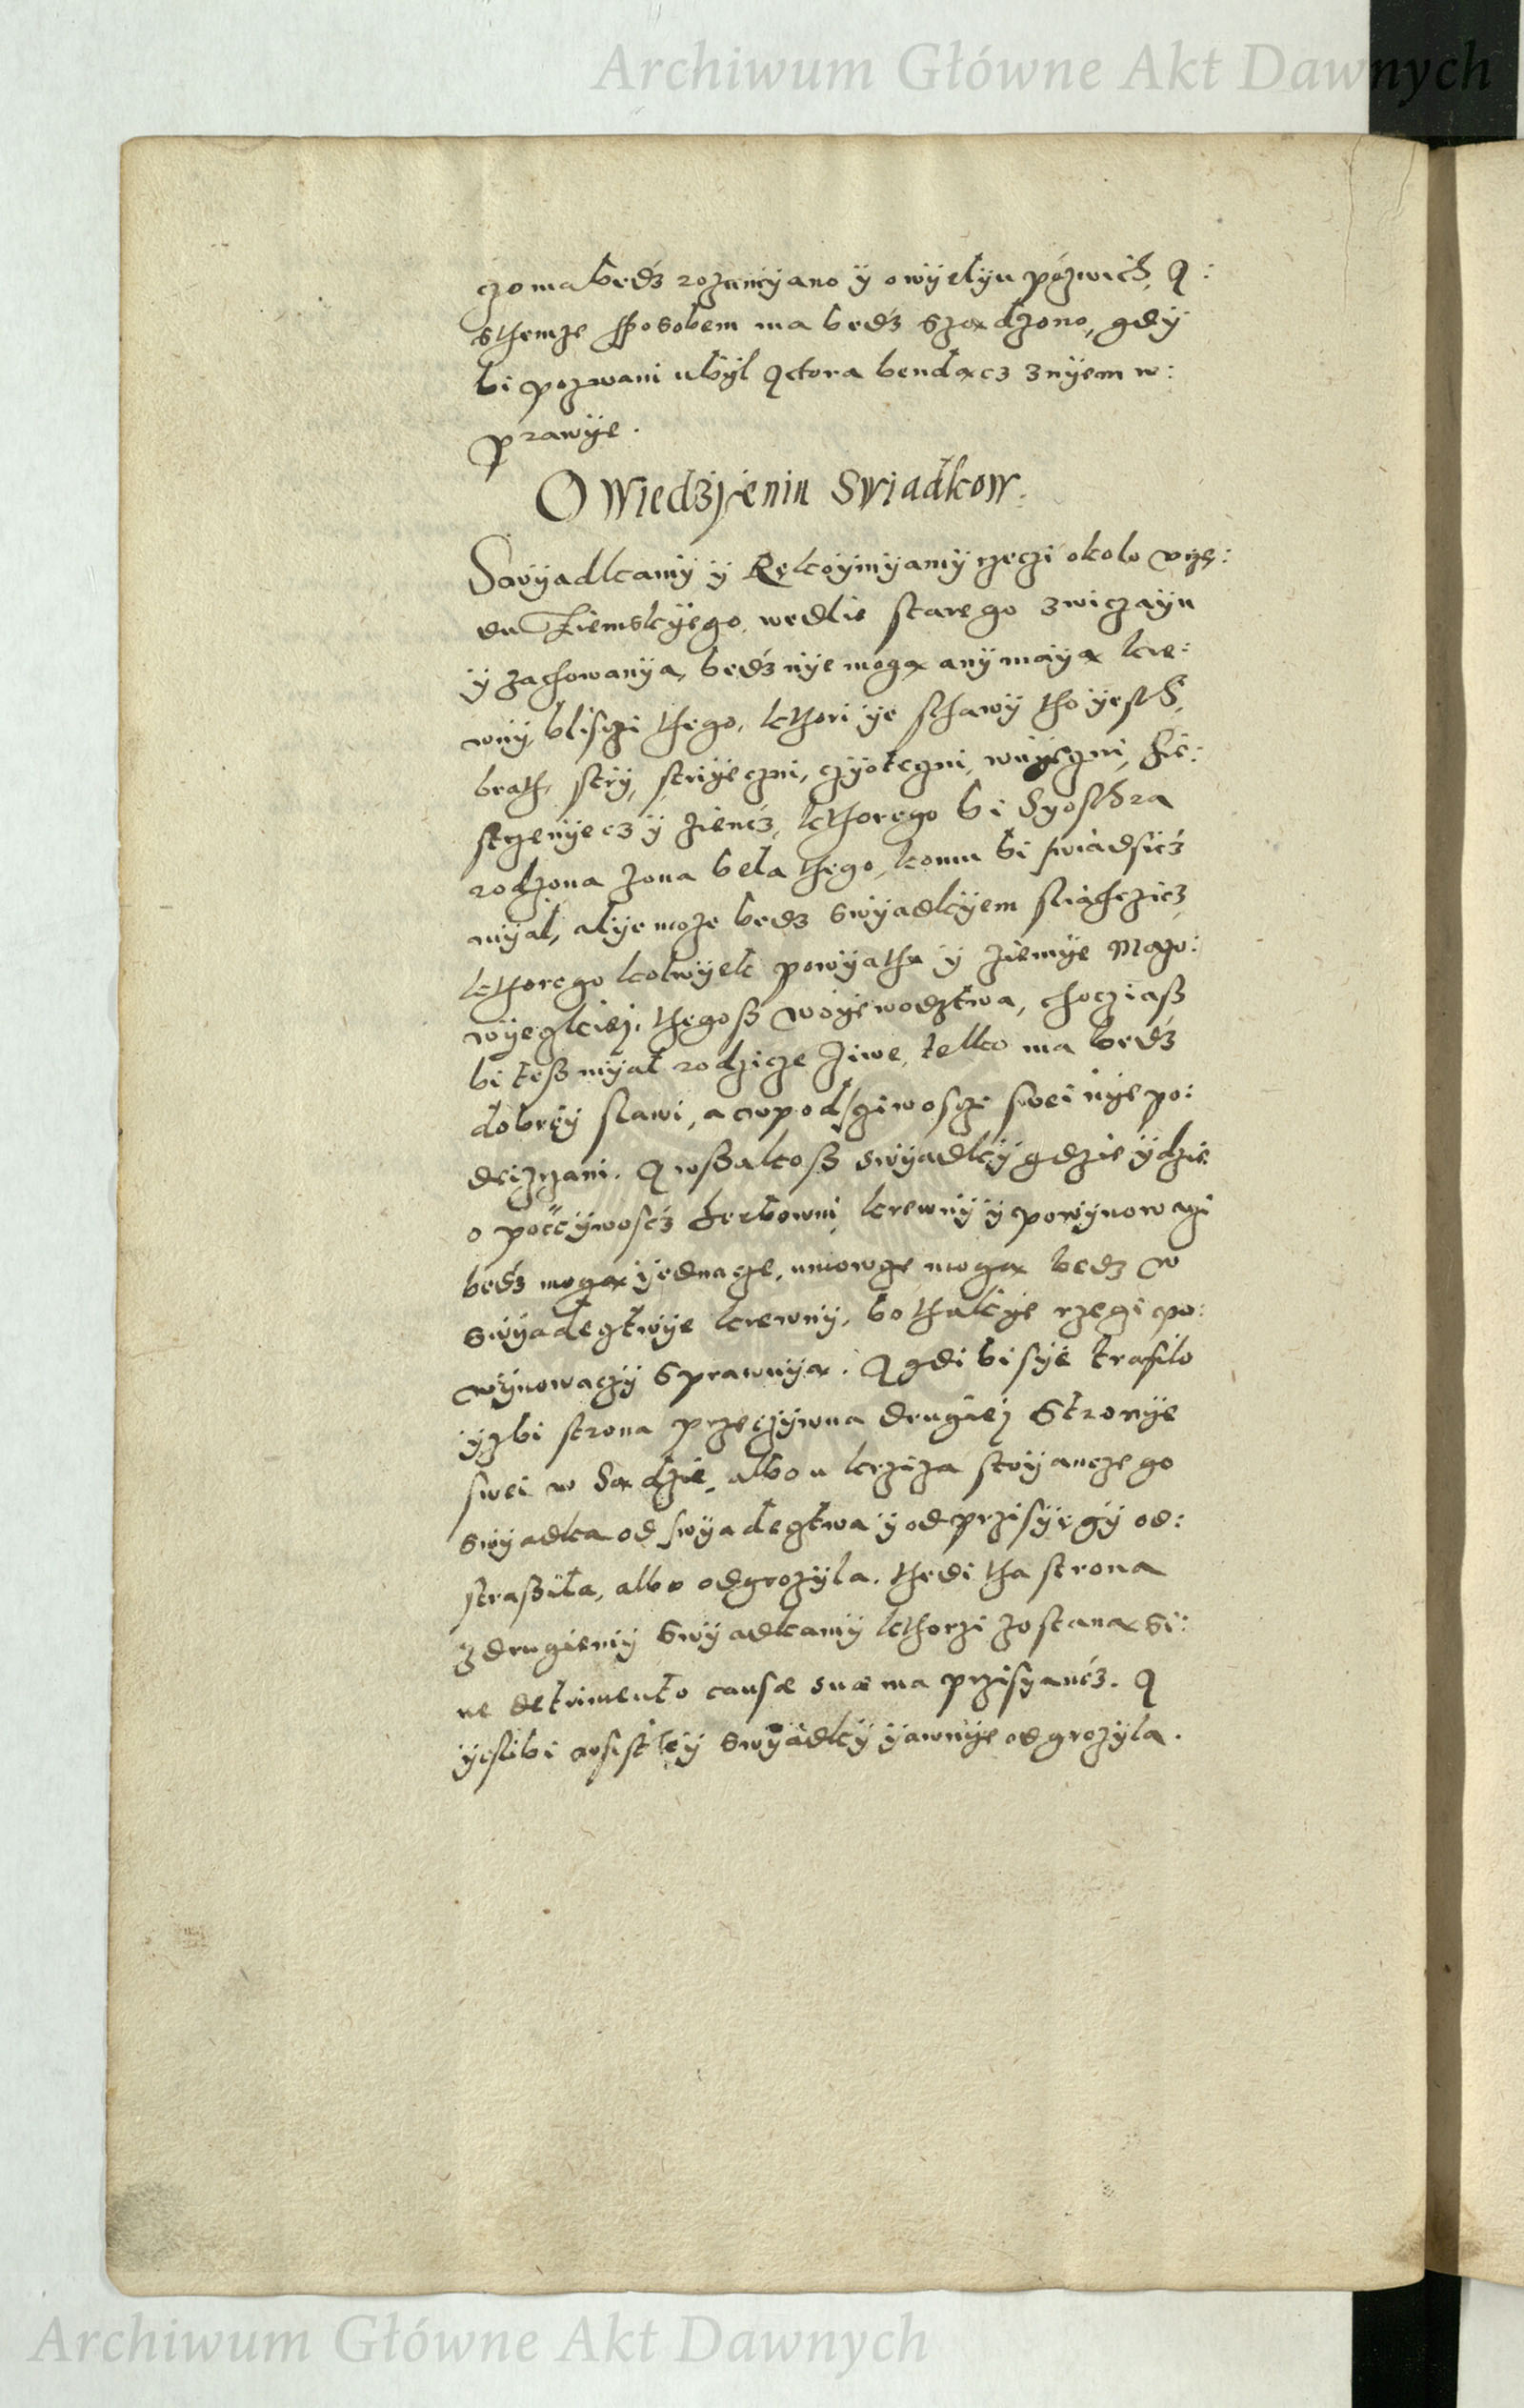 Archiwum Główne Akt Dawnych
czo ma bedź rozumyano ÿ o wÿelÿu pozwich, A:
sthemze sposobem ma bedź szadzono, gdÿ
bi pozwani ubÿl Actora bendacz znÿem w:
prawÿe.
O Wiedzienin Swiadkow.
Swÿadkamÿ ÿ Rękoÿmÿamÿ rzeczi okolo vrzę:
du Ziemskÿego, wedlie starego zwiczaÿu
ÿ zachowanÿa, bedź nÿe moga anÿ maÿa kre:
wnÿ, bliszi thego, kthori ÿe sthawÿ tho ÿesth,
brath, strÿ, striÿeczni, czÿoteczni, wuÿeczni, sie:
strzenÿecz ÿ zienćz, kthorego bi Sÿosthra
rodzona zona bela thego, komu bi swiadsićz
mÿal, alÿe moze bedz swÿadkÿem sliachczicz
kthorego kolwÿek powÿathu ÿ ziemÿe Mazo:
wÿeczkieÿ, thegosz woÿewodztwa, chocziasz
bi tesz mÿal rodzicze ziwe, telko ma bedź
dobreÿ slawi, a w poczciwosczi swei nÿe po:
deizrzani. A wszakosz swÿadkÿ gdzie ÿdzie
o poććÿwosćz herbowni krewnÿ ÿ powÿnowaczi
bedź moga ÿednacze, umowcze moga bedz w
swÿadectwÿe krewnÿ, bo thakÿe rzeczi po:
wÿnowaczÿ sprawuÿa. A gdi bi sÿe trafilo
ÿzbi strona przeczÿwna drugieÿ stronÿe
swei w Sadzie, albo u krziza stoÿanczego
swÿadka od swÿadectwa ÿ od przisÿęgÿ od:
straszÿla, albo odgrozÿla, thedi tha strona
z drugiemÿ swÿadkamÿ kthorzi zostana si:
ne detrimento causæ suæ ma przisÿanćz. A
ÿeslibi wsistkÿ swÿadkÿ ÿawnÿe odgrozÿla.
Archiwum Główne Akt Dawnych